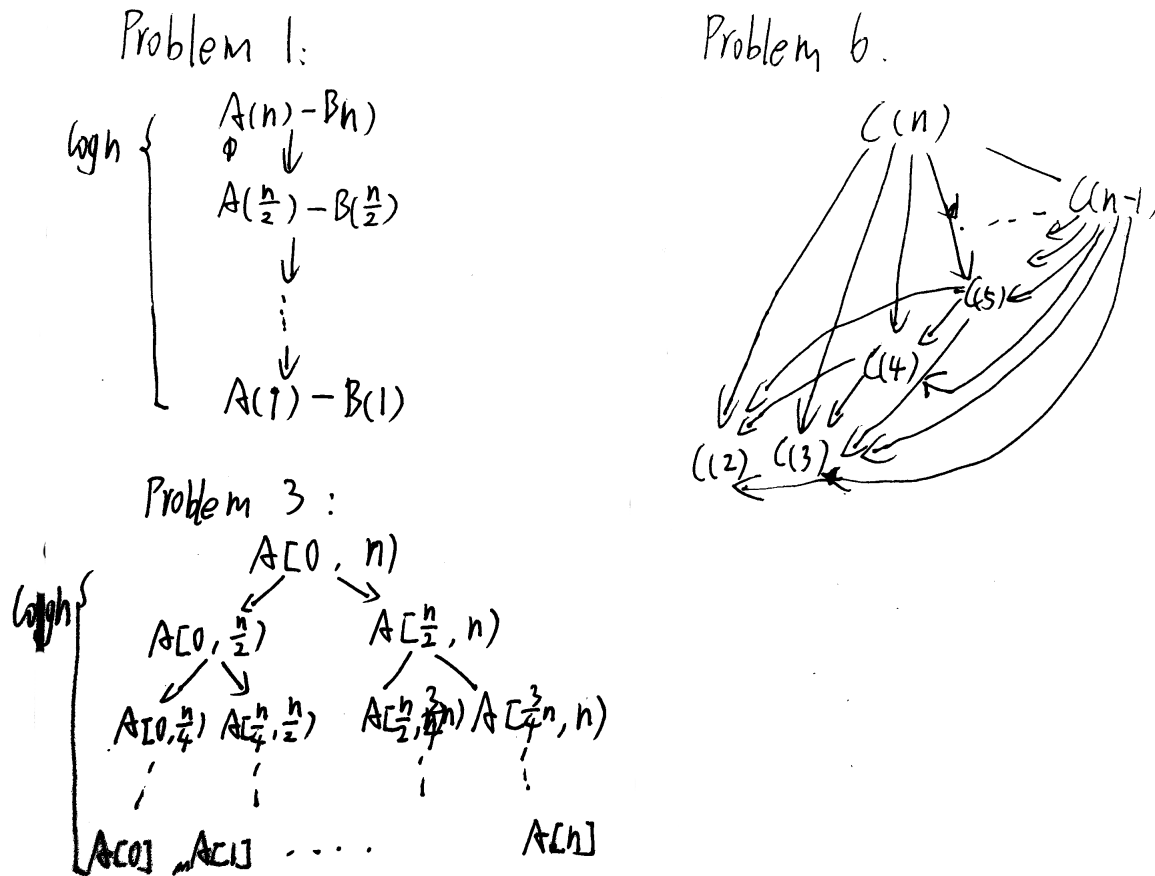 Problem 1:
logn { A(n) - Bn)
A(n/2) - B(n/2)
A(1) - B(1)
Problem 3:
logn { A[0, n)
A[0, n/2) A[n/2, n)
A[0, n/4) A[n/4, n/2) A[n/2, 3/4n) A[3/4n, n)
A[0] A[1] .... A[n]
Problem 6.
C(n)
C(n-1,
C(5)
C(4)
C(2) C(3)